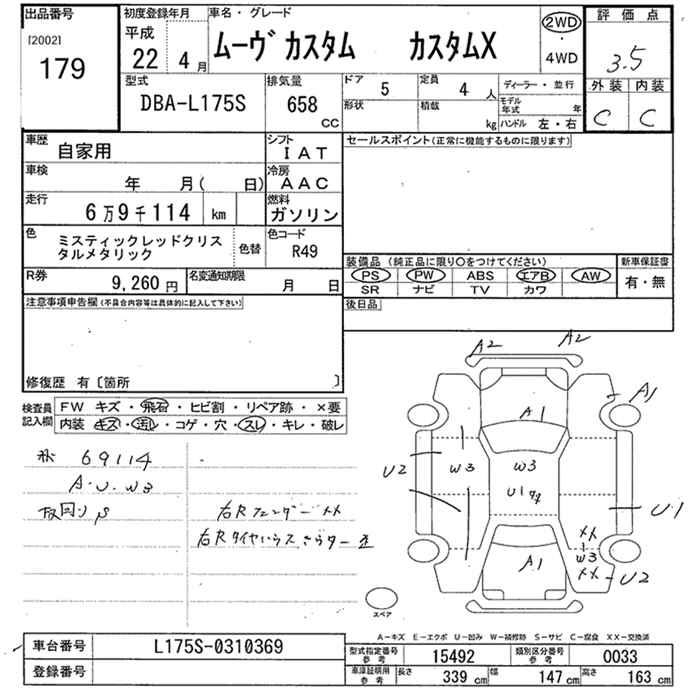 出品番号
[2002]
179
初度登録年月
平成
22 4 月
車名・グレード
ムーヴ カスタム カスタムX
2WD
4WD
評価点
3.5
外装 内装
C C
型式
DBA-L175S
排気量
658
CC
ドア
5
定員
4 人
形状
積載
kg
ディーラー・並行
モデル年式
年
ハンドル 左・右
車歴
自家用
シフト
IAT
車検
年 月( 日)
冷房
AAC
走行
6万9千114 km
燃料
ガソリン
色
ミスティックレッドクリス
タルメタリック
色替
色コード
R49
R券
9,260 円
名変通知期限
月 日
セールスポイント(正常に機能するものに限ります)
装備品(純正品に限り○をつけてください)
PS PW ABS エアB AW
SR ナビ TV カワ
新車保証書
有・無
後日品
注意事項申告欄(不具合内容等は具体的に記入して下さい)
修復歴 有〔箇所 〕
検査員
記入欄
FW キズ・飛石・ヒビ割・リペア跡・×要
内装 キズ・汚レ・コゲ・穴・スレ・キレ・破レ
69114
A.U.W3
右Rフェンダー XX
A2
A2
A1
A1
U2
W3
W3
U1
U1
XX
W3
XX
U2
A1
スペア
A-キズ E-エクボ U-凹み W-補修跡 S-サビ C-腐食 XX-交換済
車台番号
L175S-0310369
登録番号
型式指定番号
参考
15492
類別区分番号
参考
0033
車庫証明用
参考
長さ 339 cm 幅 147 cm 高さ 163 cm